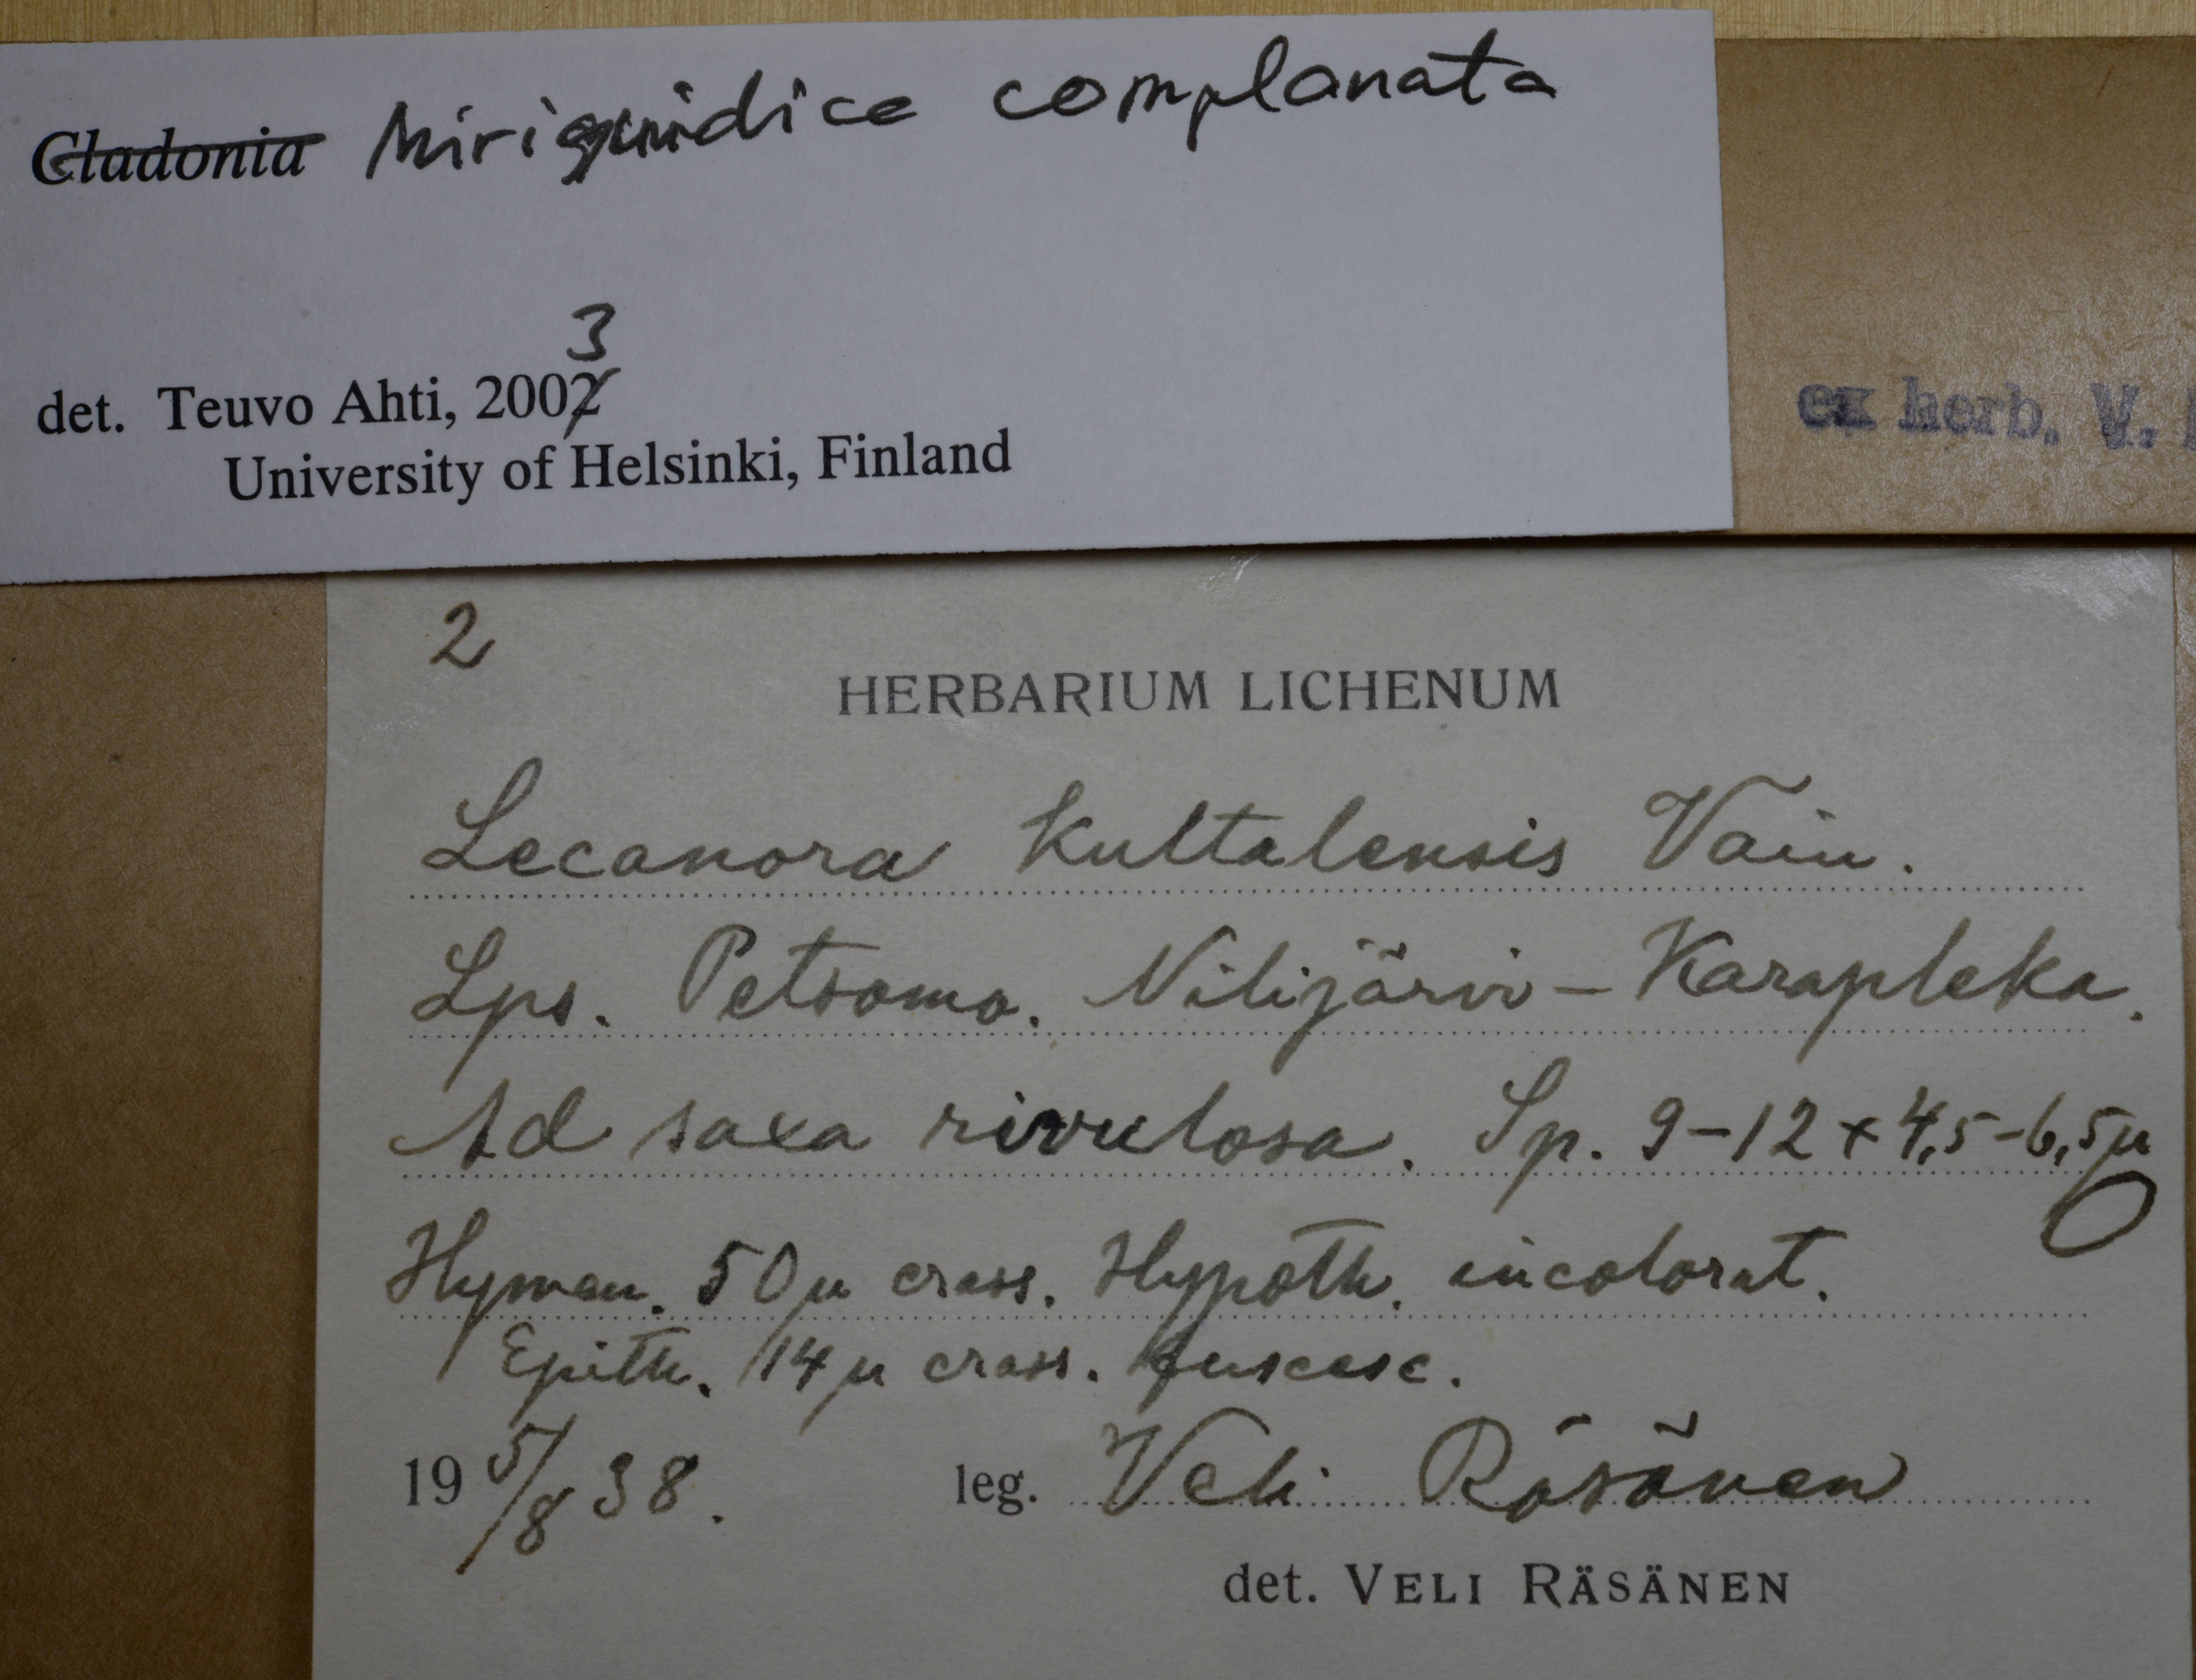 Cladonia Miriquidica complanata
3
det. Teuvo Ahti, 2002
University of Helsinki, Finland
ex herb. V.
2
HERBARIUM LICHENUM
Lecanora kultalensis Vain.
Lps. Petsamo. Nilijärvi - Karapleka.
Ad saxa rivulosa. Sp. 9-12 x 4,5-6,5µ
Hymen. 50µ crass. Hypoth. incolorat.
Epith. 14µ crass. fuscesc.
19 5/8 38. leg. Veli Räsänen
det. VELI RÄSÄNEN